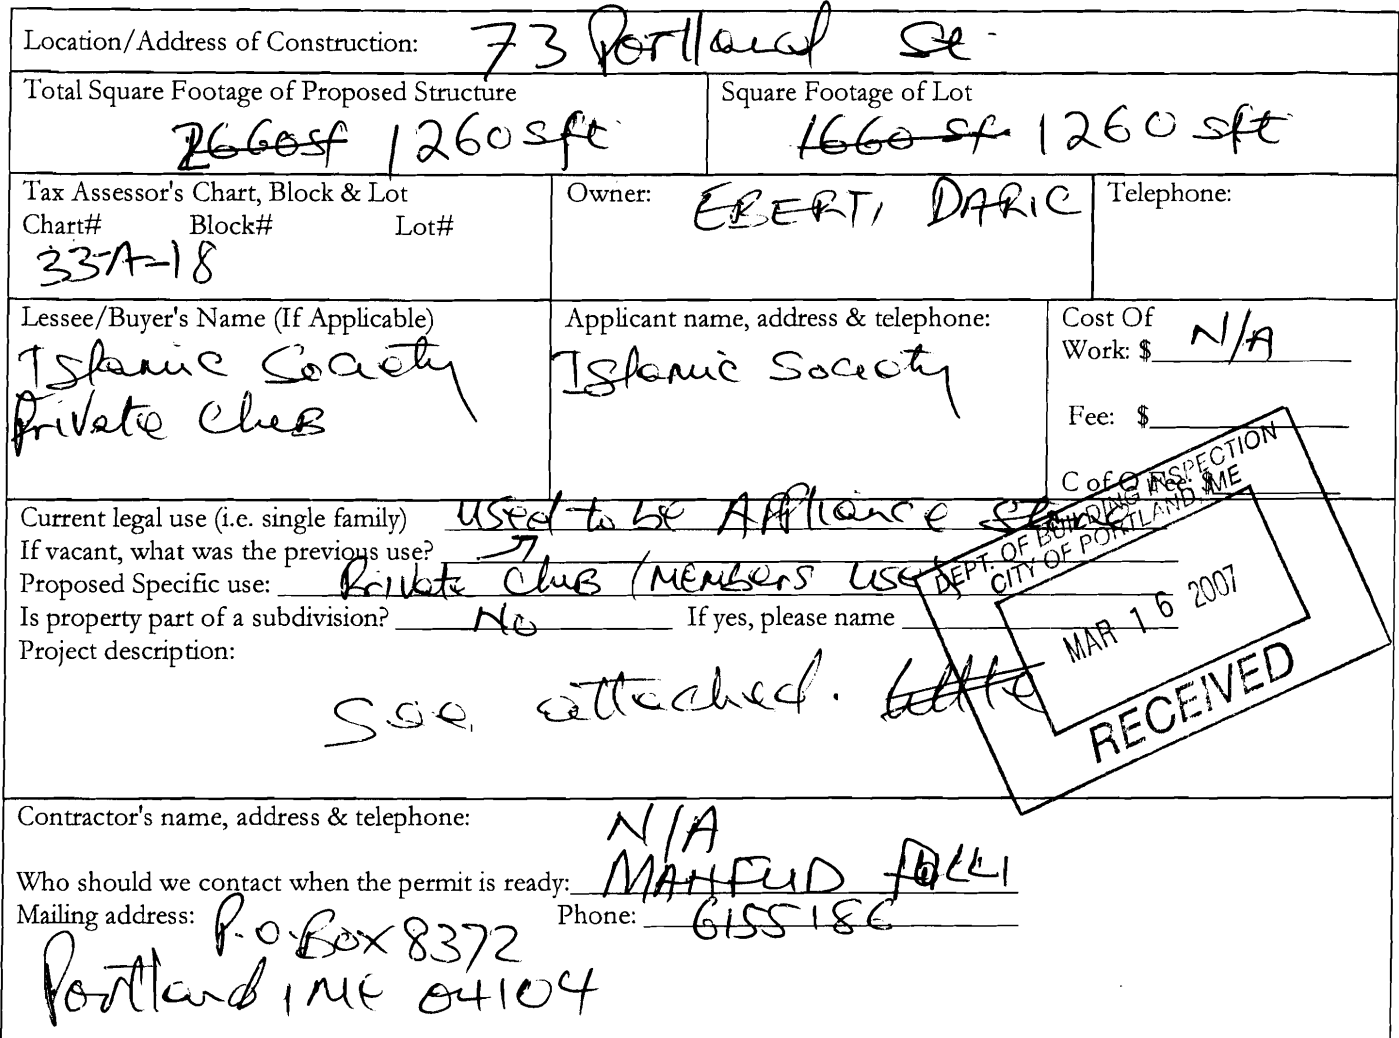 Location/Address of Construction: 73 Portland St.
Total Square Footage of Proposed Structure
2660sf 1260 sft
Square Footage of Lot
1660 sf 1260 sft
Tax Assessor's Chart, Block & Lot
Chart# Block# Lot#
33-A-18
Owner: EBERT, DARIC
Telephone:
Lessee/Buyer's Name (If Applicable)
Islamic Society
Private Club
Applicant name, address & telephone:
Islamic Society
Cost Of
Work: $ N/A
Fee: $
C of O Fee: $
Current legal use (i.e. single family) used to be Appliance Store
If vacant, what was the previous use?
Proposed Specific use: Private Club (MEMBERS use
Is property part of a subdivision? No If yes, please name
Project description:
See attached.
DEPT. OF BUILDING INSPECTION
CITY OF PORTLAND, ME
MAR 16 2007
RECEIVED
Contractor's name, address & telephone: N/A
Who should we contact when the permit is ready: MAHFUD
Mailing address: P.O. Box 8372
Portland, ME 04104
Phone: 6155186